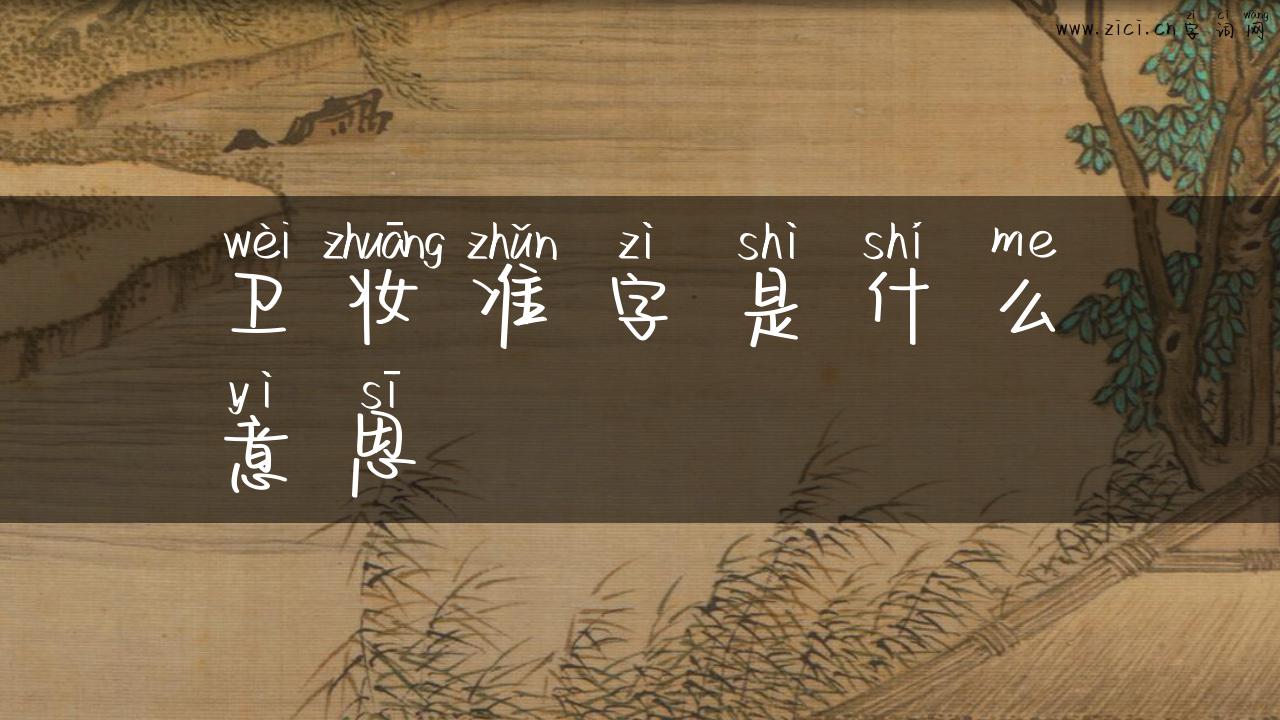 zì cí wǎng
www.zici.cn字词网
wèi zhuāng zhǔn zì shì shí me
卫妆准字是什么
yì sī
意思